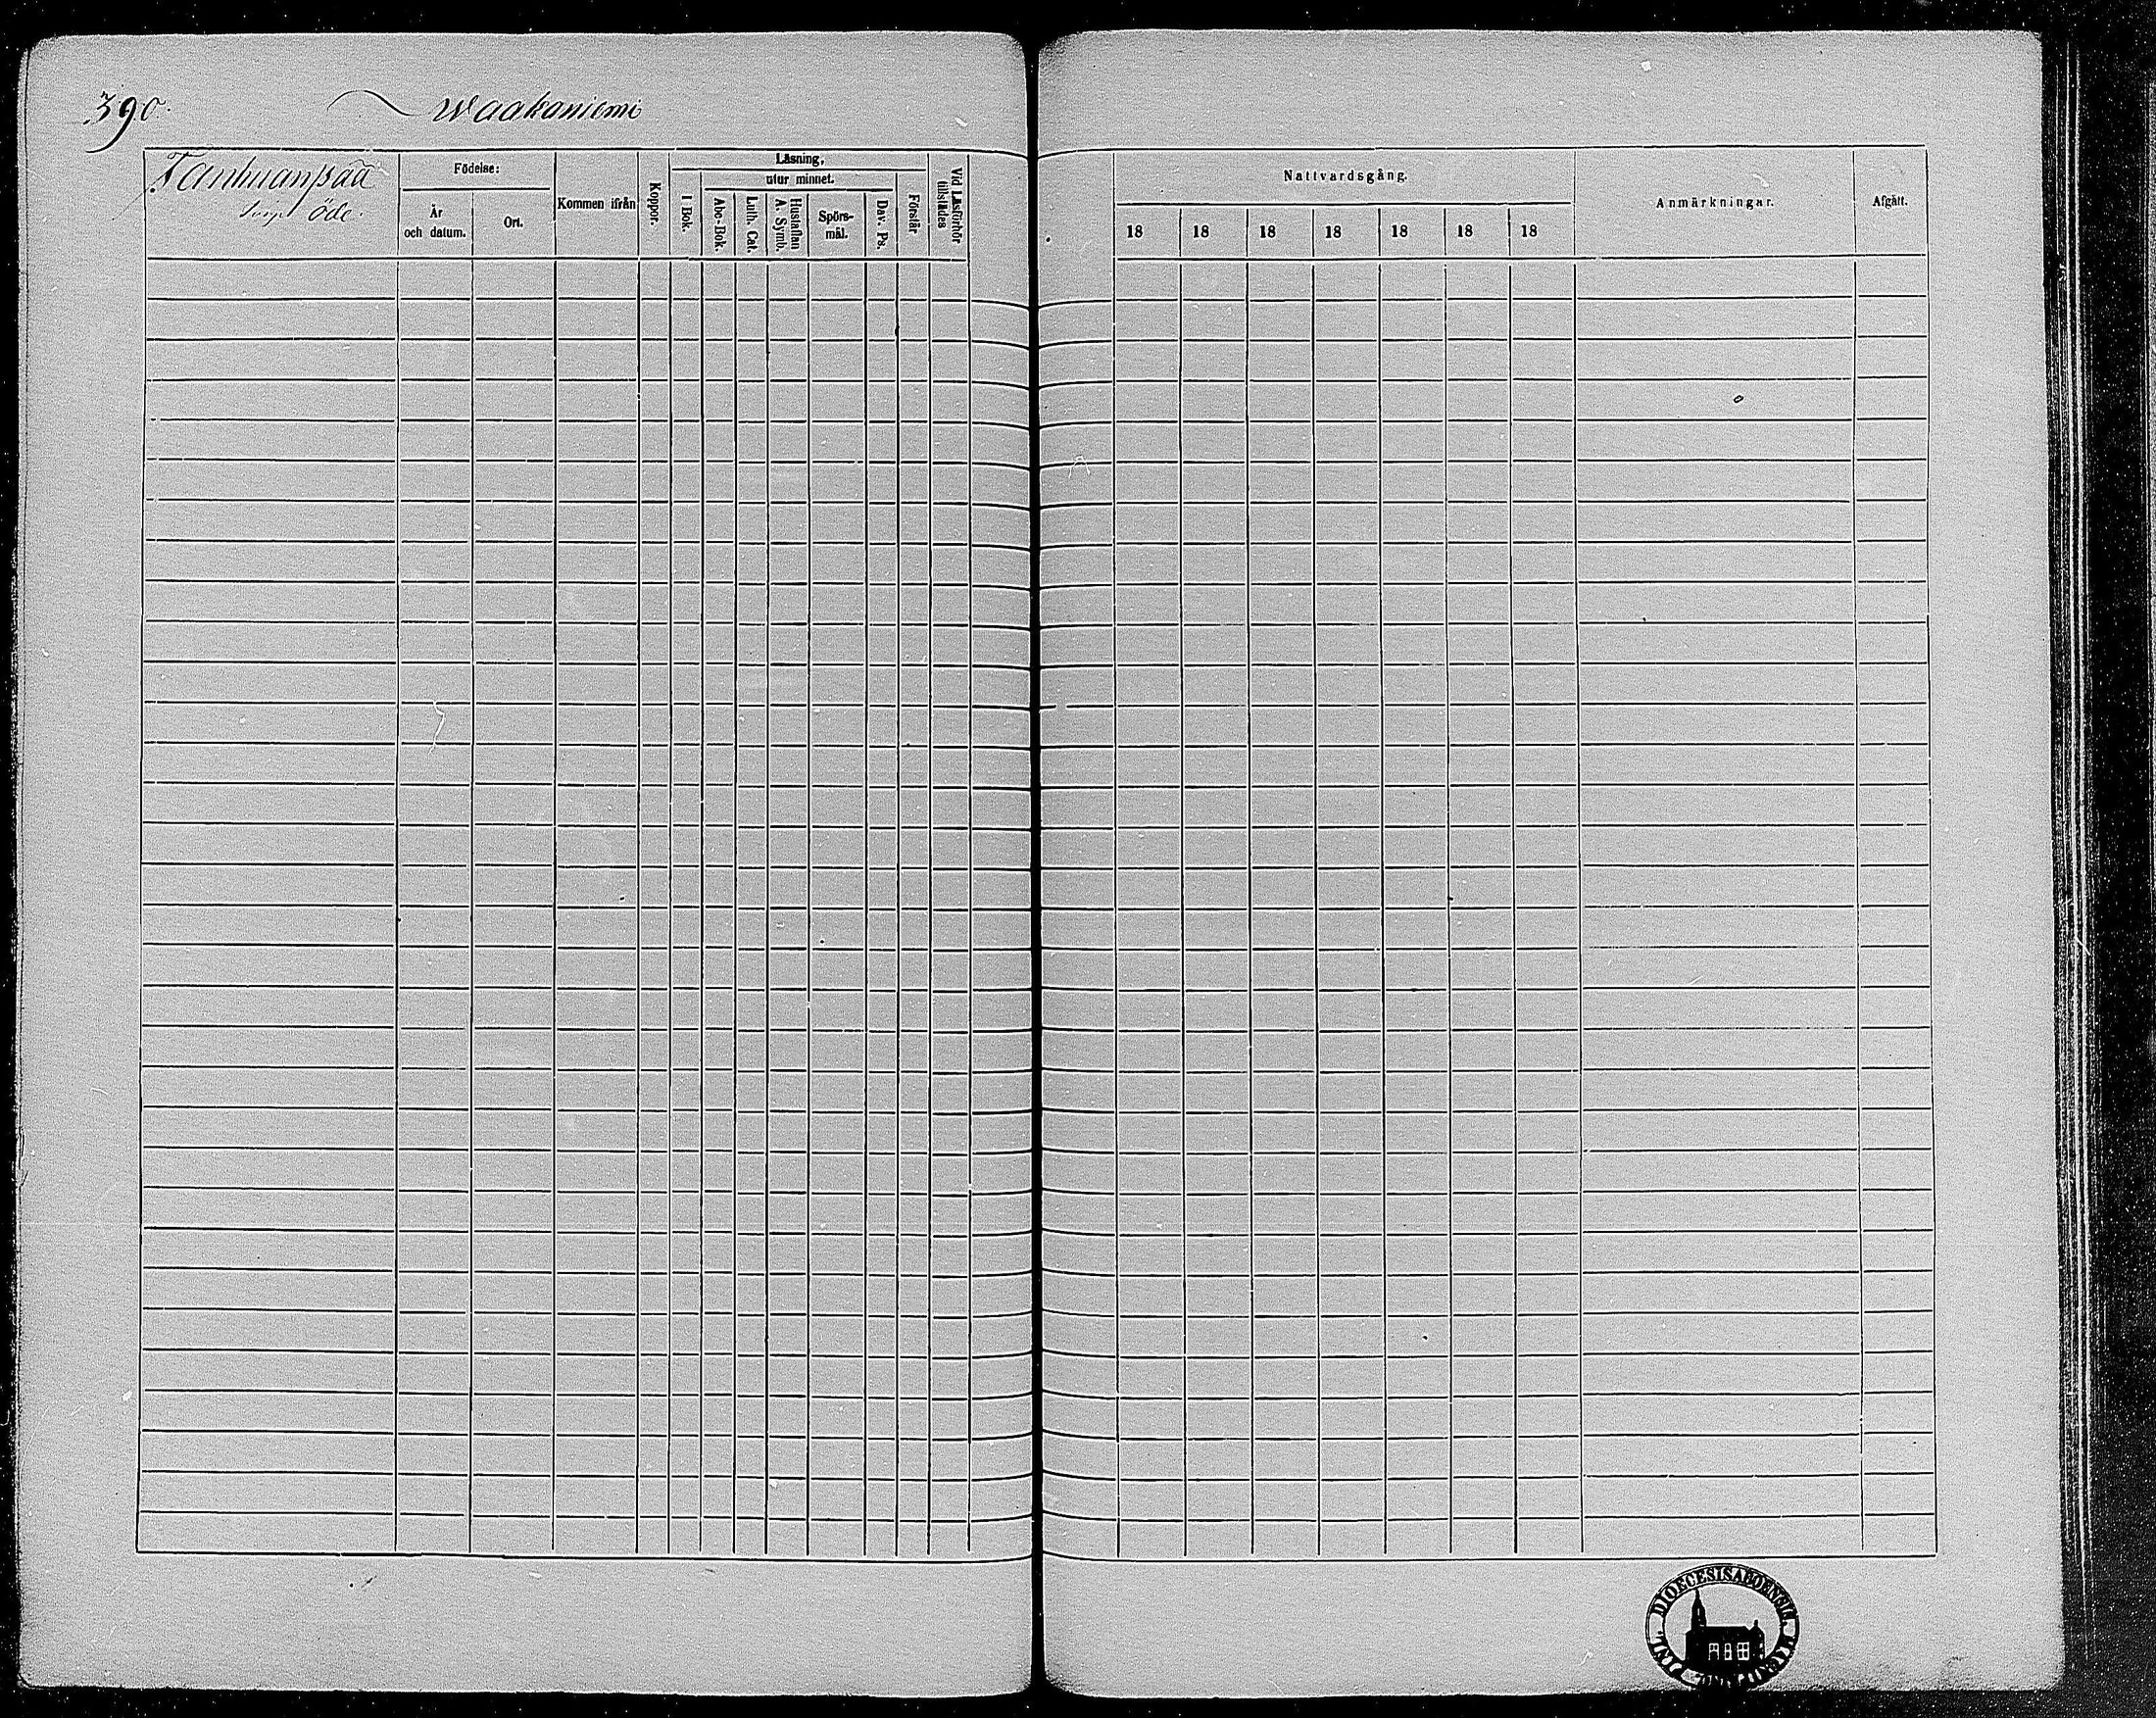 390. Waakaniemi
Tanhuanpää
torp öde.
Födelse:
År
och datum.
Ort.
Kommen ifrån
Koppor.
Läsning,
utur minnet.
I Bok.
Abc-Bok.
Luth. Cat.
Hustaflan
A. Symb.
Spörs-
mål.
Dav. Ps.
Förstår
Vid Läsförhör
tillstädes
Nattvardsgång.
18 18 18 18 18 18 18
Anmärkningar.
Afgått.
DIOECESIS ABOENSIS